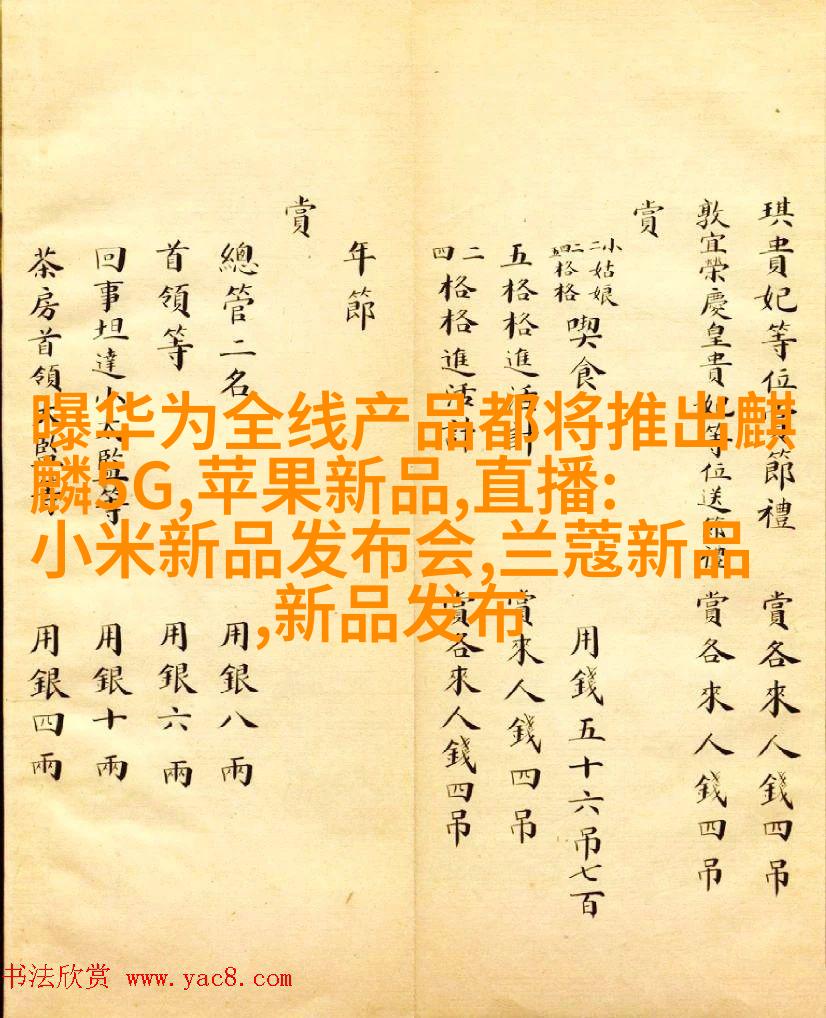 琪貴妃等位節禮 賞各來人錢四吊
敦宜榮慶皇貴妃等位送節禮 賞各來人錢四吊
賞
小姑娘 格格 喫食 用錢五十六吊七百
五格格進活計 賞來人錢四吊
二四格格進活計 賞各來人錢四吊
年節
賞
總管二名 用銀八兩
首領等 用銀六兩
回事坦達小太監等 用銀十兩
茶房首領太監等 用銀四兩
曝华为全线产品都将推出麒
麟5G,苹果新品,直播:
小米新品发布会,兰蔻新品
,新品发布
书法欣赏 www.yac8.com